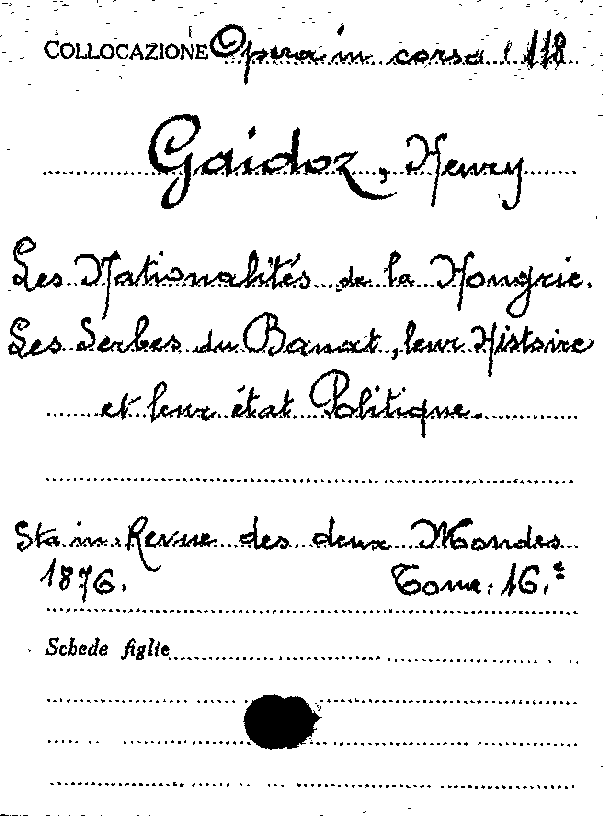 COLLOCAZIONE Opera in corso: 118
Gaidoz, Henry
Les Nationalités de la Hongrie.
Les Serbes du Banat, leur Histoire
et leur état Politique.
Sta in. Revue des deux Mondes
1876. Tome. 16.e
Schede figlie